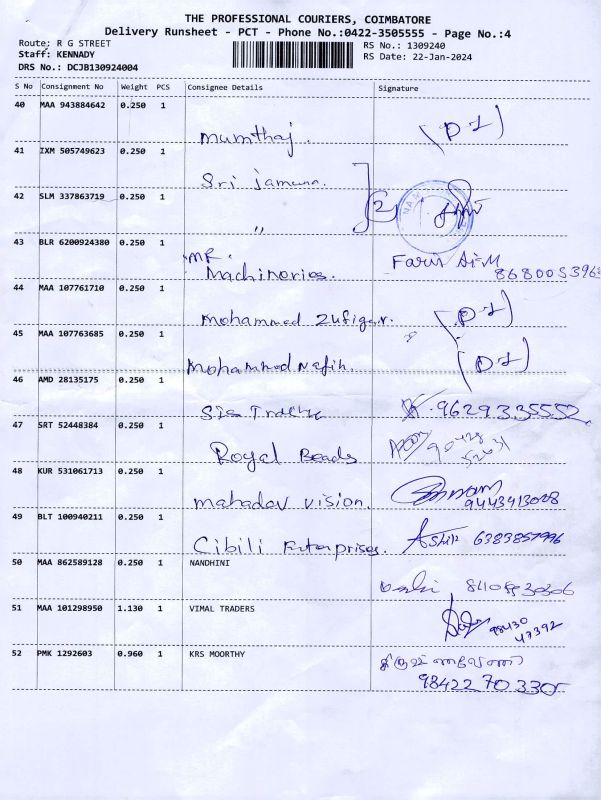 THE PROFESSIONAL COURIERS, COIMBATORE
Delivery Runsheet - PCT - Phone No.:0422-3505555 - Page No.:4
Route: R G STREET
RS No.: 1309240
Staff: KENNADY
RS Date: 22-Jan-2024
DRS No.: DCJB130924004
S No Consignment No Weight PCS Consignee Details Signature
40 MAA 943884642 0.250 1
Mumthaj. (D1)
41 IXM 505749623 0.250 1
Sri jamuna.
42 SLM 337863719 0.250 1
" (2)
43 BLR 6200924380 0.250 1
MR.
Machineries.
44 MAA 107761710 0.250 1
Mohammed Zufigar. (D1)
45 MAA 107763685 0.250 1
Mohammed Nafih. (D1)
46 AMD 28135175 0.250 1
9629335552
47 SRT 52448384 0.250 1
Royal Beads
48 KUR 531061713 0.250 1
Mahadev Vision. 9443413028
49 BLT 100940211 0.250 1
Cibili Enterprises. 6383857996
50 MAA 862589128 0.250 1 NANDHINI
51 MAA 101298950 1.130 1 VIMAL TRADERS
98430
47392
52 PMK 1292603 0.960 1 KRS MOORTHY
98422 70330